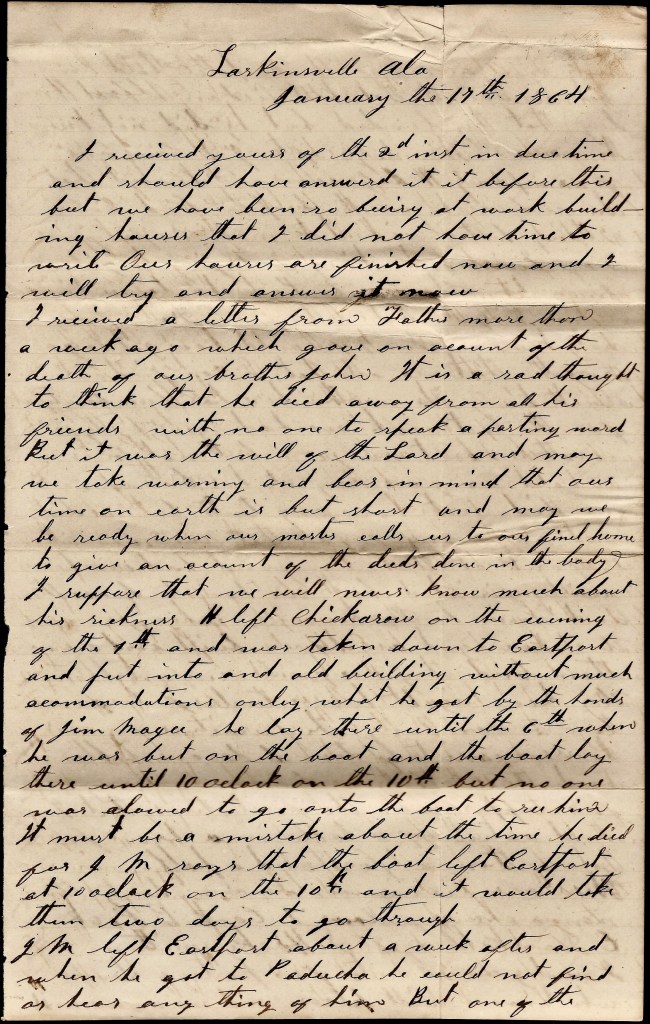 Larkinsville Ala
January the 17th 1864
I received yours of the 2d inst in due time
and should have answerd it it before this
but we have been so buisy at work build-
ing houses that I did not have time to
write Our houses are finished now and I
will try and answer it now
I received a letter from Father more than
a week ago which gave an acount of the
death of our brother John It is a sad thought
to think that he died away from all his
friends with no one to speak a parting word
But it was the will of the Lord and may
we take warning and bear in mind that our
time on earth is but short and may we
be ready when our master calls us to our final home
to give an acount of the deeds done in the body
I suppose that we will never know much about
his sickness H left Chickasaw on the evening
of the 1th and was taken down to Eastport
and put into and old building without much
acommodations only what he got by the hands
of Jim Magee he lay there until the 6th when
he was but on the boat and the boat lay
there until 10 oclock on the 10th but no one
was alowed to go onto the boat to see him
It must be a mistake about the time he died
for J M says that the boat left Eastport
at 10 oclock on the 10th and it would take
them two days to go through
J M left Eastport about a week after and
when he got to Paducha he could not find
or hear any thing of him But one of the